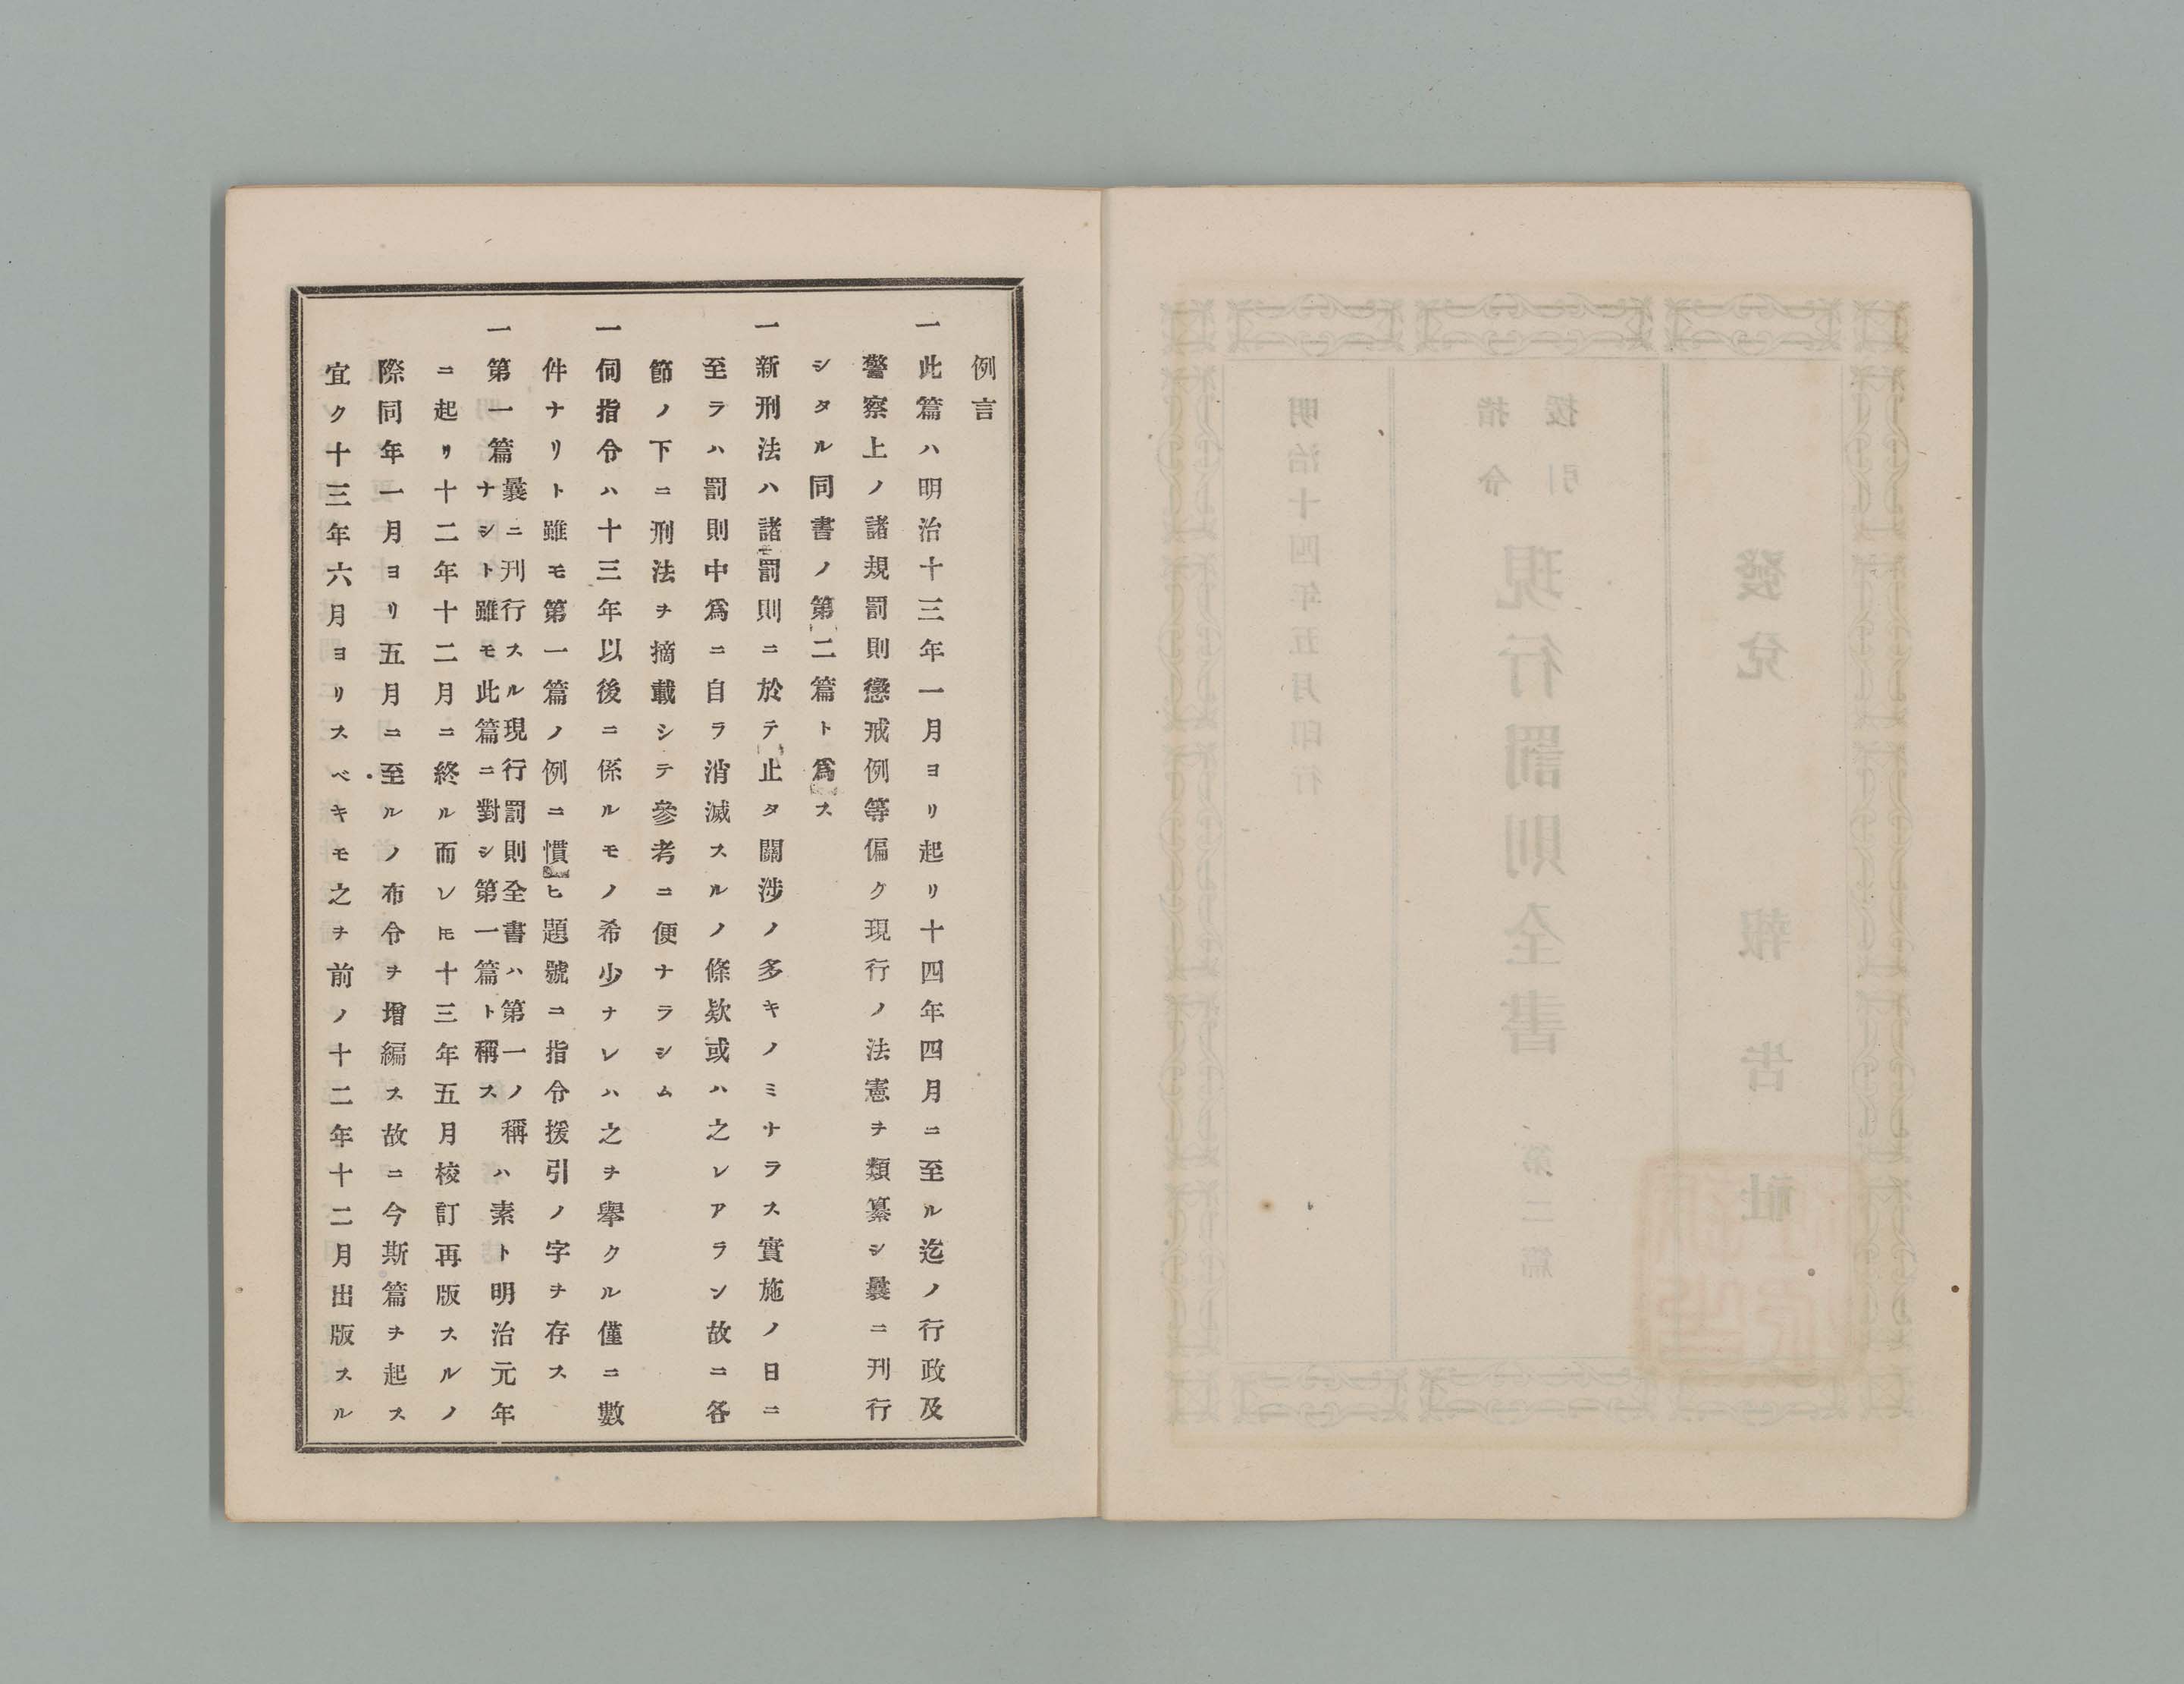 發兌 報告社
援引
指令
現行罰則全書 第二篇
明治十四年五月印行
例言
一此篇ハ明治十三年一月ヨリ起リ十四年四月ニ至ル迄ノ行政及
警察上ノ諸規罰則懲戒例等偏ク現行ノ法憲ヲ類纂シ曩ニ刊行
シタル同書ノ第二篇ト爲ス
一新刑法ハ諸罰則ニ於テ止タ關渉ノ多キノミナラス實施ノ日ニ
至ラハ罰則中爲ニ自ラ消滅スルノ條欵或ハ之レアラン故ニ各
節ノ下ニ刑法ヲ摘載シテ參考ニ便ナラシム
一伺指令ハ十三年以後ニ係ルモノ希少ナレハ之ヲ擧クル僅ニ數
件ナリト雖モ第一篇ノ例ニ慣ヒ題號ニ指令援引ノ字ヲ存ス
一第一篇
曩ニ刊行スル現行罰則全書ハ第一ノ稱
ナシト雖モ此篇ニ對シ第一篇ト稱ス
ハ素ト明治元年
ニ起リ十二年十二月ニ終ル而レ𪜈十三年五月校訂再版スルノ
際同年一月ヨリ五月ニ至ルノ布令ヲ增編ス故ニ今斯篇ヲ起ス
宜ク十三年六月ヨリスベキモ之ヲ前ノ十二年十二月出版スル